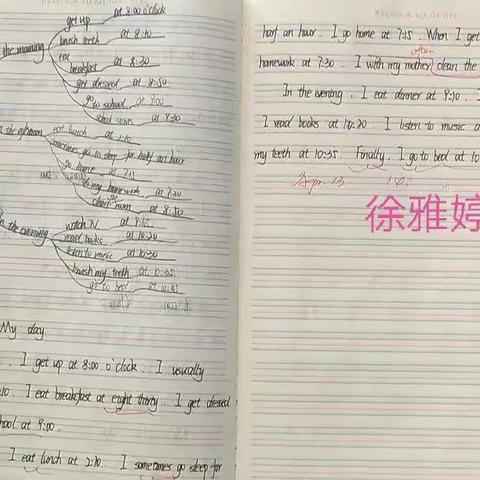 the morning
get up at 8:00 o'clock
brush teeth at 8:10
eat breakfast at 8:30
get dressed at 8:50
go to school at 9:00
at 9:30
the afternoon
eat lunch at 2:10
sometimes go to sleep for half an hour
go home at 7:15
do my homework at 7:30
clean room at 8:50
In the evening
watch TV
read books at 10:20
listen to music at 10:30
brush my teeth at 10:35
go to bed
My day
I get up at 8:00 o'clock. I usually
:10. I eat breakfast at eight thirty. I get dressed
hool at 9:00.
I eat lunch at 2:10. I sometimes go sleep for
harf an hour. I go home at 7:15. When I get
homework at 7:30. I with my mother clean the
In the evening. I eat dinner at 9:10.
I read books at 10:20. I listen to music a
my teeth at 10:35. Finally, I go to bed at 10
徐雅婷